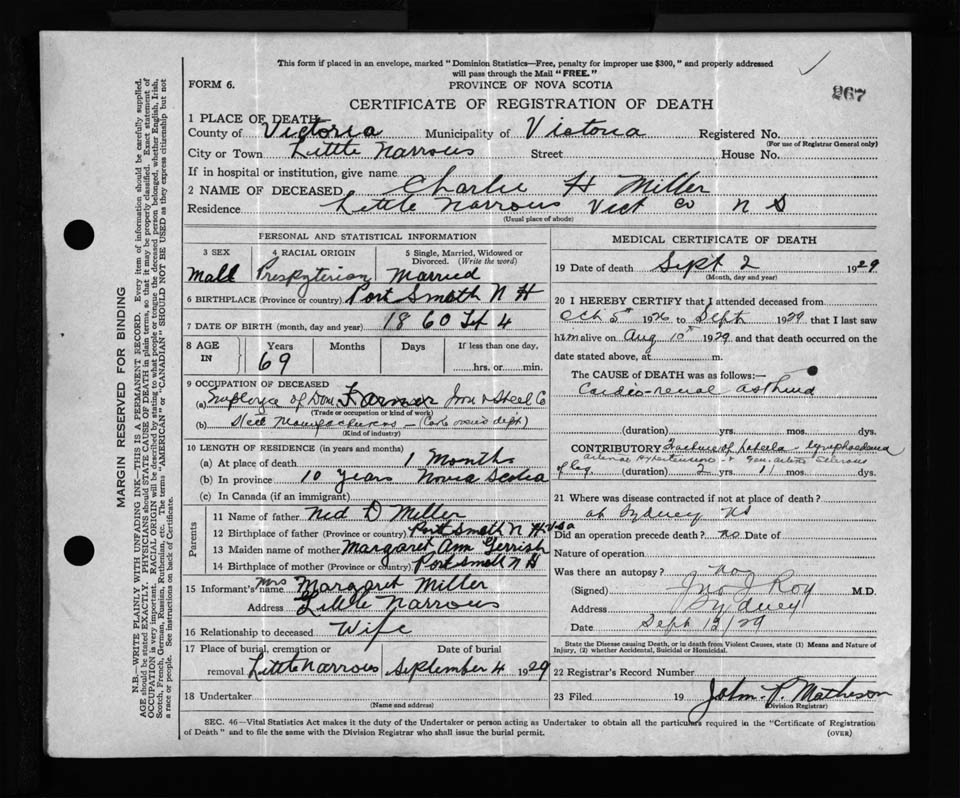 This form if placed in an envelope, marked "Dominion Statistics—Free, penalty for improper use $300," and properly addressed
will pass through the Mail "FREE."
FORM 6.
PROVINCE OF NOVA SCOTIA
267
CERTIFICATE OF REGISTRATION OF DEATH
1 PLACE OF DEATH
County of Victoria Municipality of Victoria Registered No.
(For use of Registrar General only)
City or Town Little Narrows Street House No.
If in hospital or institution, give name
2 NAME OF DECEASED Charlie H Miller
Residence Little Narrows Vict Co N S
(Usual place of abode)
PERSONAL AND STATISTICAL INFORMATION
3 SEX 4 RACIAL ORIGIN 5 Single, Married, Widowed or Divorced. (Write the word)
Male Presbyterian Married
6 BIRTHPLACE (Province or country) Port Smoth N H
7 DATE OF BIRTH (month, day and year) 1860 4
8 AGE IN Years Months Days If less than one day,
69 hrs. or min.
9 OCCUPATION OF DECEASED
(a) Employee of Dom Farmer Iron & Steel Co
(Trade or occupation or kind of work)
(b) Steel Manufacturers — (Coke ovens dept)
(Kind of industry)
10 LENGTH OF RESIDENCE (in years and months)
(a) At place of death 1 Months
(b) In province 10 years Nova Scotia
(c) In Canada (if an immigrant)
Parents
11 Name of father Ned D Miller
12 Birthplace of father (Province or country) Port Smoth N H USA
13 Maiden name of mother Margaret Ann Gerrish
14 Birthplace of mother (Province or country) Port Smoth N H
15 Informant's name Mrs Margaret Miller
Address Little Narrows
16 Relationship to deceased Wife
17 Place of burial, cremation or removal Little Narrows Date of burial September 4 1929
18 Undertaker
(Name and address)
MEDICAL CERTIFICATE OF DEATH
19 Date of death Sept 2 1929
(Month, day and year)
20 I HEREBY CERTIFY that I attended deceased from
Oct 5th 1926 to Sept 1929 that I last saw
him alive on Aug 10th 1929 and that death occurred on the
date stated above, at m.
The CAUSE OF DEATH was as follows:—
Cardio-renal asthma
(duration) yrs. mos. dys.
CONTRIBUTORY
arterial hypertension +
of leg (duration) 2 yrs. 1 mos. dys.
21 Where was disease contracted if not at place of death?
at Sydney NS
Did an operation precede death? no Date of
Nature of operation
Was there an autopsy? no
(Signed) Jno J Roy M.D.
Address Sydney
Date Sept 12/29
State the Disease causing Death, or in death from Violent Causes, state (1) Means and Nature of
Injury, (2) whether Accidental, Suicidal or Homicidal.
22 Registrar's Record Number
23 Filed 19 John P. Matheson
(Division Registrar)
SEC. 46—Vital Statistics Act makes it the duty of the Undertaker or person acting as Undertaker to obtain all the particulars required in the "Certificate of Registration
of Death" and to file the same with the Division Registrar who shall issue the burial permit.
(OVER)
MARGIN RESERVED FOR BINDING
N.B.—WRITE PLAINLY WITH UNFADING INK—THIS IS A PERMANENT RECORD. Every item of information should be carefully supplied.
AGE should be stated EXACTLY. PHYSICIANS should STATE CAUSE OF DEATH in plain terms, so that it may be properly classified. Exact statement of
OCCUPATION is very important. RACIAL ORIGIN will be described by stating to what people or tongue the deceased person belonged, whether English, Irish,
Scotch, French, German, Russian, Ruthenian, etc. The terms "AMERICAN" or "CANADIAN" SHOULD NOT BE USED as they express citizenship but not
a race or people. See instructions on back of Certificate.